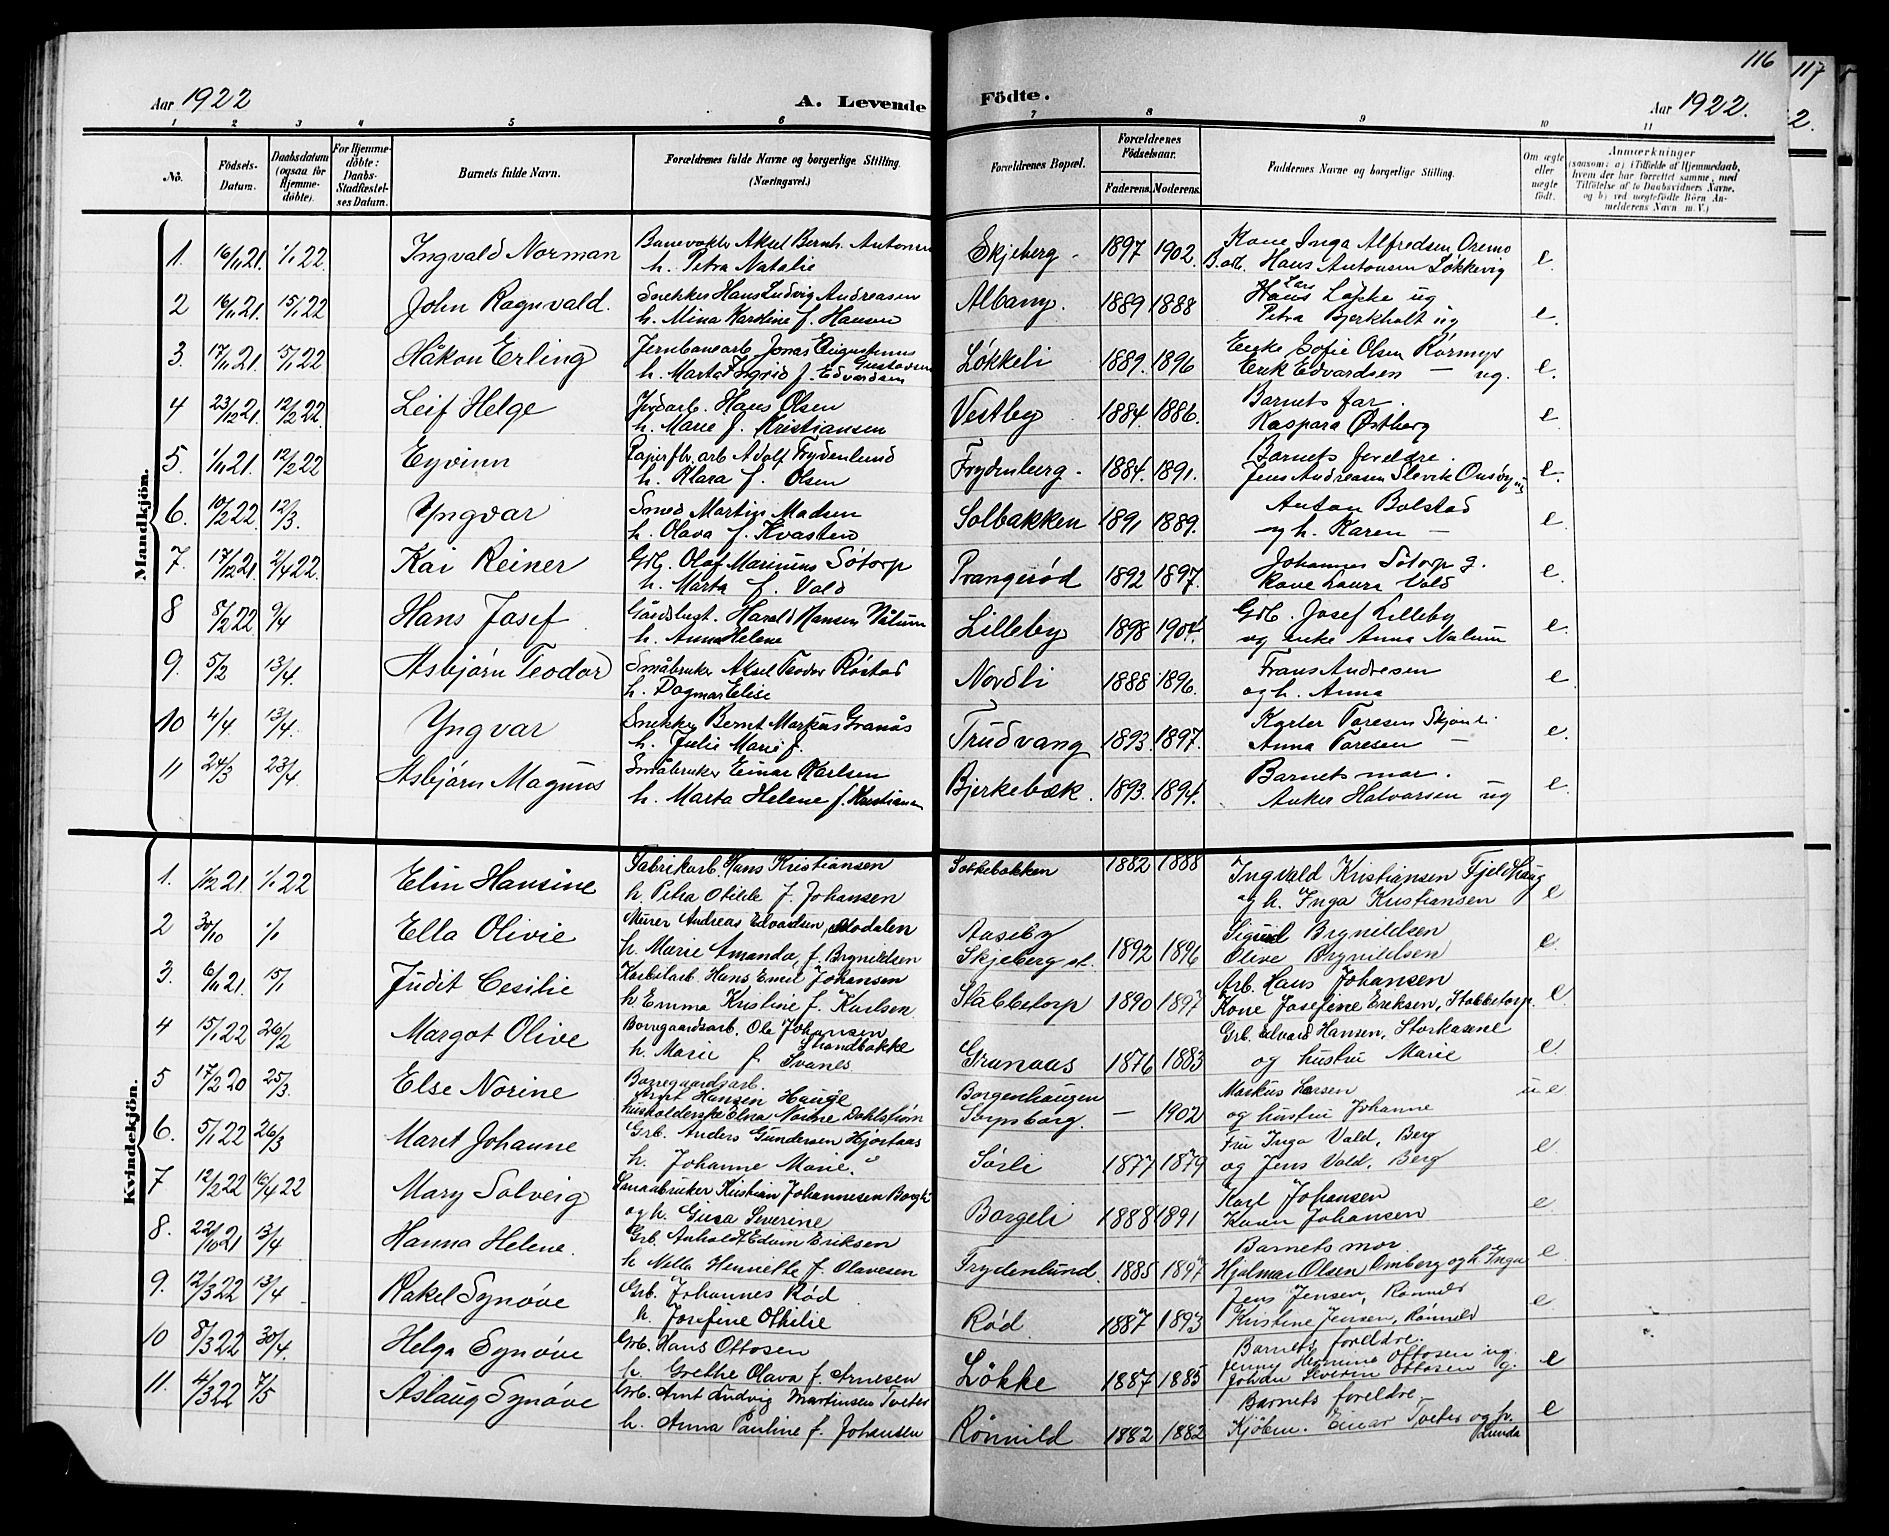 116
117
Aar 1922
A. Levende Födte.
Aar 1922.
2.
1 2 3 4 5 6 7 8 9 10 11
No.
Födsels-Datum.
Daabsdatum (ogsaa for Hjemme-döbte).
For Hjemme-döbte: Daabs-Stadfæstel-ses Datum.
Barnets fulde Navn.
Forældrenes fulde Navne og borgerlige Stilling. (Næringsvei.)
Forældrenes Bopæl.
Forældrenes Födselsaar.
Faderens. Moderens.
Faddernes Navne og borgerlige Stilling.
Om ægte eller uægte födt.
Anmærkninger
(saasom: a) i Tilfælde af Hjemmedaab, hvem der har forrettet samme, med Tilföielse af to Daabsvidners Navne, og b) ved uægtefödte Börn Anmelderens Navn m. V.)
Mandkjön.
1. 16/11 21. 1/1 22. Ingvald Norman Banevokt. Aksel Bernh. Antonsen Skjeberg. 1897 1902. Kone Inga Alfredsen Oremo e.
h. Petra Natalie B.arb. Hans Antonsen Løkkevig
2 16/11 21. 15/1 22 John Ragnvald. Snekker Hans Ludvig Andreasen Albany. 1889 1888 Hans Løkke ug e.
h. Mina Karoline f. Hansen Petra Bjerkholt ug
3 17/11 21. 15/1 22 Håkon Erling Jernbanearb Jonas Augustinus Gustavsen Løkkeli 1889. 1896 Enke Sofie Olsen Rörmyr e.
h. Marta Ingrid f. Edvardsen Erik Edvardsen — ug.
4 23/12 21. 12/2 22. Leif Helge Jordarb. Hans Olsen Vestby 1884 1886. Barnets far. e
h. Marie f. Kristiansen Kaspara Østberg
5. 1/11 21. 12/2 22 Eyvinn Papirfbr. arb Adolf Frydenlund Frydenberg. 1884. 1891. Barnets foreldre. e.
h. Klara f. Olsen Jens Andreasen Slevik Onsøy ug
6. 10/2 22 12/3. Yngvar Smed Martin Madsen Solbakken 1891 1889. Anton Bolstad e
h. Olava f. Kvasten og h. Karen —
7. 17/12 21. 2/4 22. Kai Reiner Gdb. Olaf Marinius Søtorp Prangerød 1892 1897. Johannes Søtorp g. e.
h. Marta f. Vold Kone Laura Vold
8 8/2 22 9/4 Hans Josef. Gårdbust. Harald Hansen Nålum Lilleby 1898 1904. Gdb. Josef Lilleby e.
h. Anna Helene og enke Anna Nalum
9. 5/2 13/4. Asbjørn Teodor Småbruker Aksel Teodor Røstad Nordli 1888 1896. Frans Andresen e
h. Dagmar Elise og h. Anna
10 4/4 13/4. Yngvar Snekker Bernt Markus Granås Trudvang 1893. 1897. Toresen e.
h. Julie Marie f. Anna Toresen —
11 24/3 23/4. Asbjørn Magnus Småbruker Einar Karlsen Bjerkebæk. 1893. 1894. Barnets mor. e
h. Marta Helene f. Kristiansen Anker Halvorsen ug
Kvindekjön.
1. 1/12 21. 1/1 22 Elin Hansine Fabrikarb. Hans Kristiansen Solbakken 1882 1888 Ingvald Kristiansen Fjeldhaug e
h. Petra Otilde f. Johansen og h. Inga Kristiansen
2 30/10 1/1 Ella Olivie Murer Andreas Edvardsen, Aaseby 1892 1896 Sigurd Brynildsen e.
h. Marie Amanda, f. Brynildsen Skjeberg st. Olive Brynildsen
3. 6/11 21. 15/1 Judit Cesilie Karbitarb. Hans Emil Johansen Stabbetorp 1890 1897 Arb. Hans Johansen e
h Emma Kristine f. Karlsen Kone Josefine Eriksen, Stabbetorp.
4 15/1 22 26/2 Margot Olive Borregaardsarb. Ole Johansen Strandbakke Granaas 1876 1883 Grb. Edvard Hansen, Storkasene e
h. Marie f. Svanes og hustru Marie
5 17/2 20 25/3. Else Norine Borregaardsarb. Hansen Hauge Borgenhaugen — 1902 Markus Larsen u e
husholderske Elna Norine Dahlstrøm Sarpsborg. og hustru Johanne
6. 5/1 22 26/3 Marit Johanne Grb. Anders Gundersen Hjortaas Sørli 1877 1879 Fru Inga Vold, Berg e
h. Johanne Marie. og Jens Vold, Berg
7 12/2 22 16/4 22 Mary Solveig Smaabruker Kristian Johannesen Borgeli 1888 1891 Karl Johansen e
og h. Severine Karen Johansen
8. 22/10 21 13/4 Hanna Helene. Grb. Anholdt Edvin Eriksen Frydenlund. 1885 1897 Barnets mor e
h Milla Henriette f. Olavesen Hjalmar Olsen Omberg og h. Inga
9. 12/3 22 13/4 Rakel Synøve Grb. Johannes Rød Rød. 1887 1893 Jens Jensen, Rønneld e
h. Josefine Othilie Kristine Jensen, Rønneld
10 8/3 22 30/4. Helga Synøve Grb. Hans Ottosen Løkke 1887 1885 Barnets foreldre. Jenny Ottosen ug. e
h. Grethe Olava f. Arnesen Johan Severin Ottosen g.
11. 4/3 22 7/5 Aslaug Synøve Grb. Arnt Ludvig Martinsen Tveter Rönnild 1882 1882 Barnets foreldre. e
h. Anna Pauline f. Johansen Kjøbm. Einar Tveter og fr. Runda